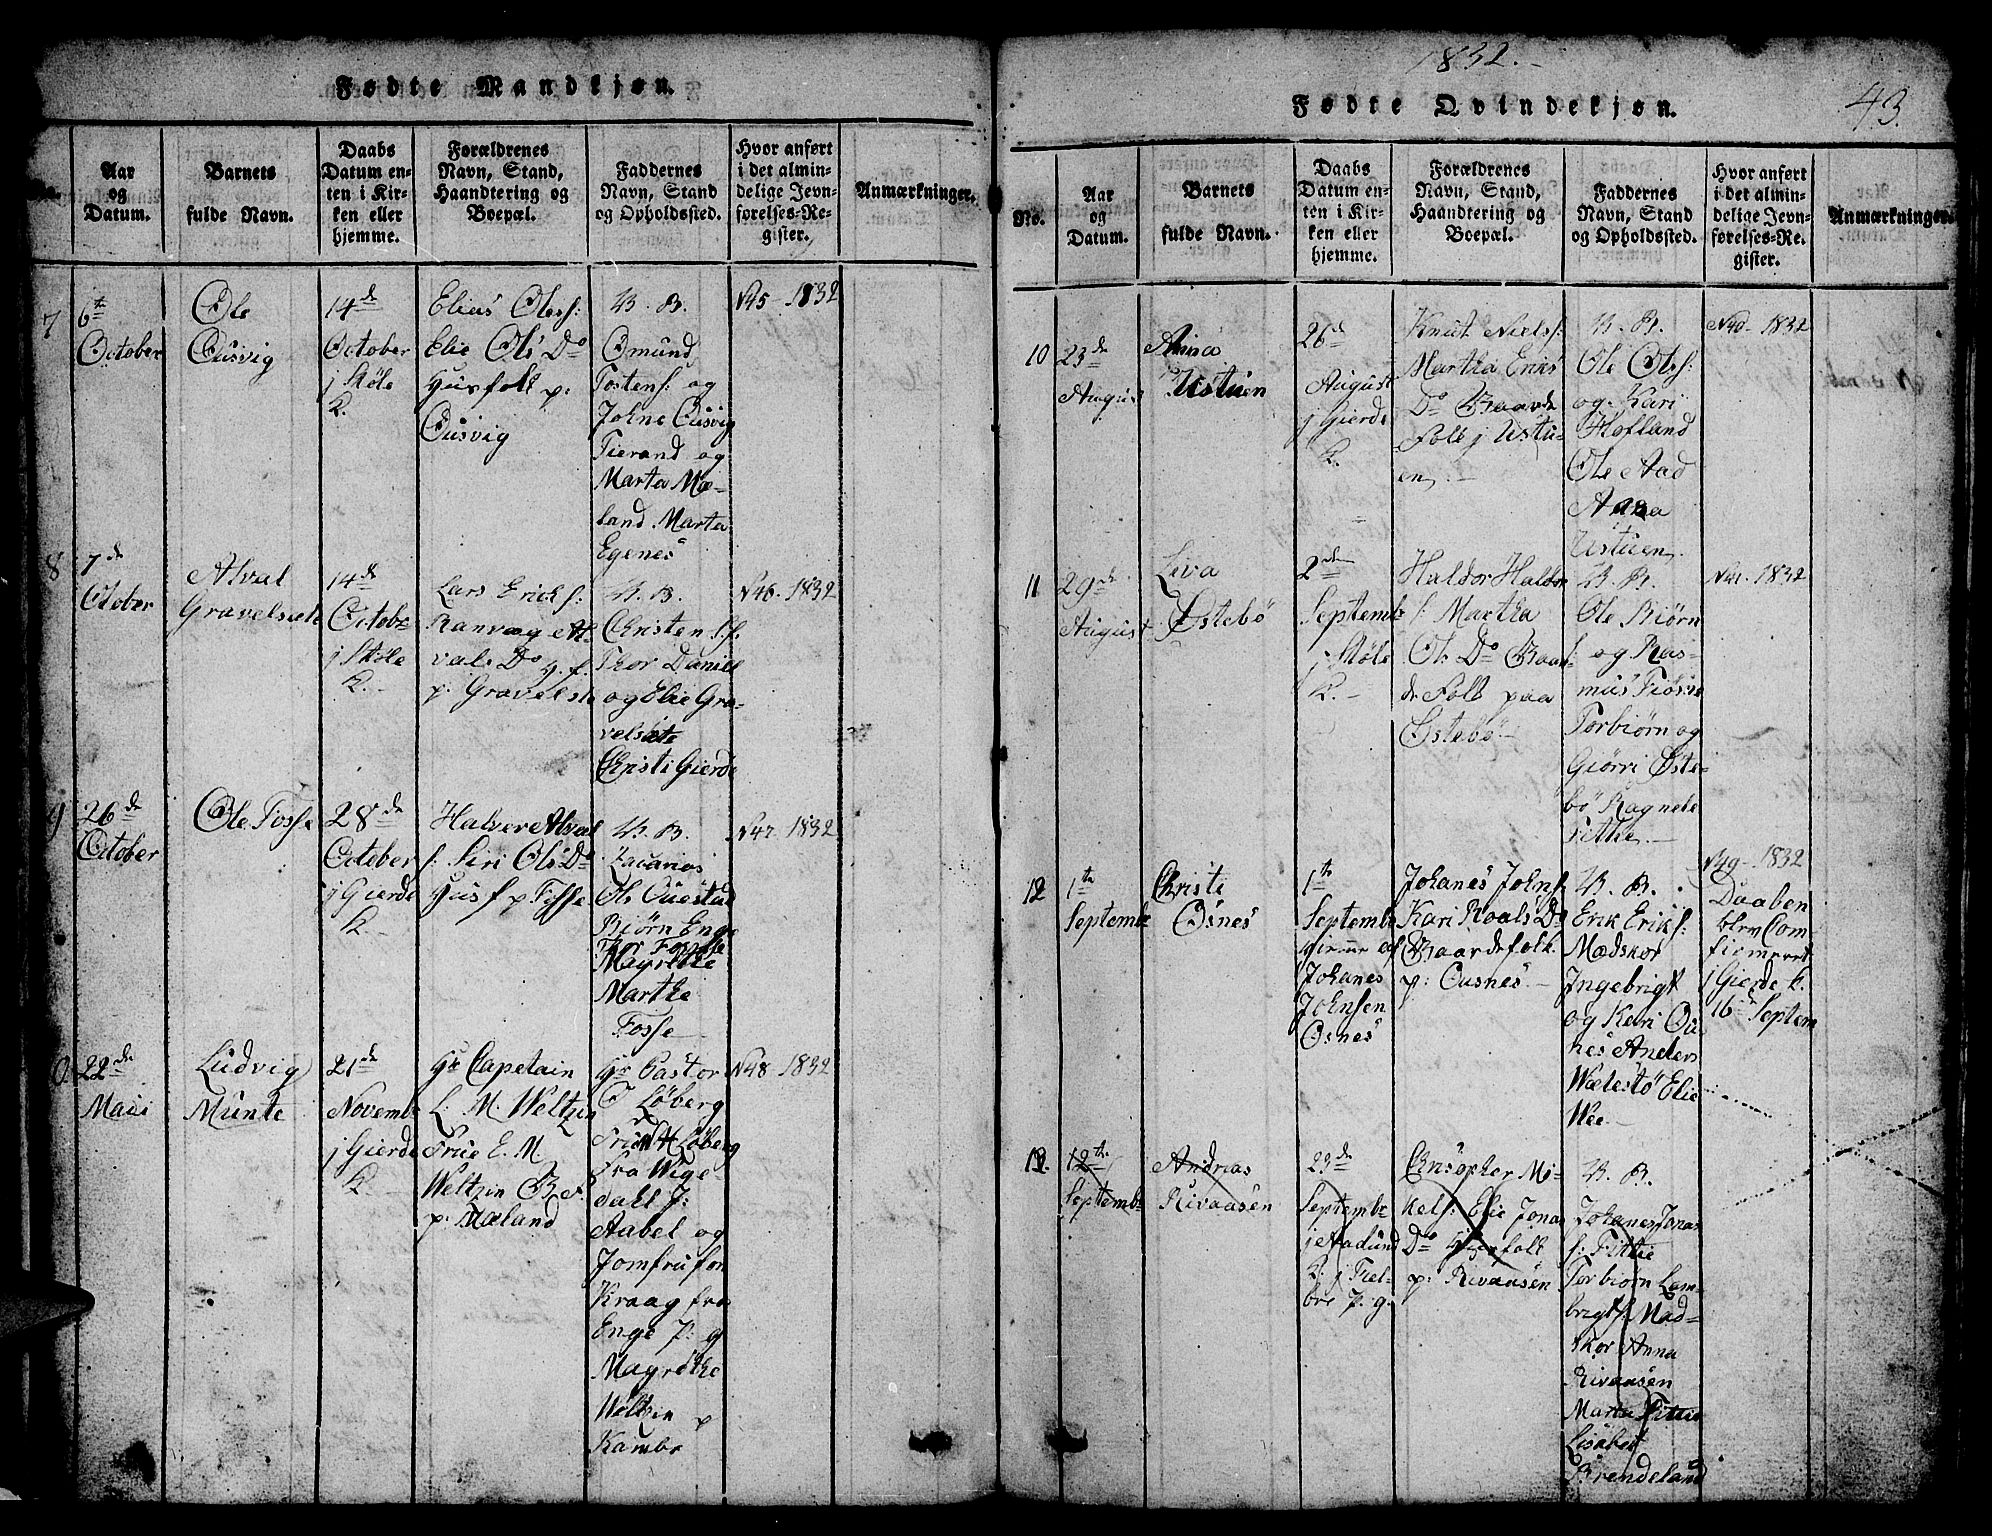 Fødte Mandkjøn.
Aar og Datum.
Barnets fulde Navn.
Daabs Datum enten i Kirken eller hjemme.
Forældrenes Navn, Stand, Haandtering og Boepæl.
Faddernes Navn, Stand og Opholdssted.
Hvor anført i det almindelige Jevnførelses-Register.
Anmærkninger.
7
6te
October
Ole
Ousvig
14de
October
j Støle
K.
Elias Olesf:
Elie Ols Do
Husfolk p:
Ousvig
V. B.
Omund
Tostensf: og
Johne Ousvig
Tierand og
Marta Mæ-
land. Marta
Egenes
N45 - 1832
8
7de
October
Alval
Gravelsæte
14de
Octobr
j Støle
K. -
Lars Ericksf:
Ranvæg Al-
vals Do H. f.
p: Gravelsete
V. B.
Christen
Thor Daniel
og Elie Gra-
velsæte
Christi Gierde
N46. 1832
9
26de
October
Ole Fosse
28de
October
j Gierde
K -
Halver Alval
f: Siri Ols Do
Husf p Fosse
V. B.
Zacarias
Ole Ouestad
Biørn Enge
Thor Fosse
Magrethe
Marthe
Fosse
N47. 1832
0.
22de
Maii
Ludvig
Munte
21de
Novembr
j Gierde
K. -
Hr Capetain
L. M. Weltzin
Frue E. M.
Weltzin B. f.
p: Mæland
Hr Pastor
Løberg
Frue H Løberg
fra Wige-
dahl P:
Aabel og
Jomfru fon
Kraag fra
Enge P: g
Magrethe
Weltzin p
Kambe
N48 - 1832
1832. -
43.
Fødte Qvindekjøn.
No.
Aar og Datum.
Barnets fulde Navn.
Daabs Datum enten i Kirken eller hjemme.
Forældrenes Navn, Stand, Haandtering og Boepæl.
Faddernes Navn, Stand og Opholdssted.
Hvor anført i det almindelige Jevnførelses-Register.
Anmærkninger.
10
23de
August
Anna
Ustuen
26de
August
j Gierde
K.
Knut Nielsf:
Martha Eriks
Do Gaarde
Folk j Ustu-
en. -
V. B.
Ole Olsf:
og Kari
Hofland
Ole Aad
Anna
Ustuen.
N40 - 1832
11
29de
August
Liva
Østebö
2den
Septembr
j Støle
K. -
Haldor Haldor
f: Martha
Ols Do Gaar-
de Folk paa
Østebö -
V. B.
Ole Biørn
f: og Ras-
mus Tiøsvo
Torbiørn og
Giørri Øste-
bö Ragnete
Vethe. -
N41. 1832
12
1te
Septembr
Christi
Osnes
1te
Septembr
hjemme af
Johanes
Johnsen
Osnes
Johanes Johnf.
Kari Roals Do
Gaardefolk
p: Ousnes. -
V. B.
Erik Eriksf:
Mædskor
Ingebrigt
og Kari Ou-
nes Anders
Wælestö Elie
Wee -
N49 - 1832
Daaben
blev Com
fiemeret
j Gierde k.
16de Septem
13.
12te
Septembr
Andreas
Rivaasen
23de
Septembr
j Aadland
K. j Fiel-
bre P. g.
Chrisopher Mi-
kelsf: Elie Jonas
Do Husfolk
p: Rivaasen
V. B.
Johanes Jonas
f: Fittie
Torbiørn Lam-
brigtsf: Mad-
skor Anna
Rivaasen
Marta Fittie
Lisabet
Brendeland